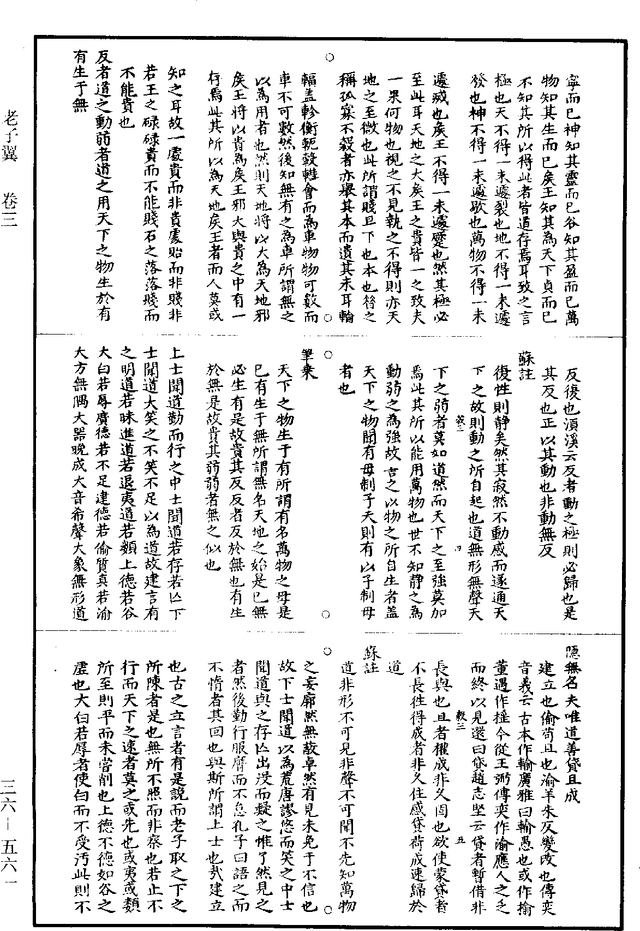 寧而已神知其靈而已谷知其盈而已萬
物知其生而已矦王知其為天下貞而已
不知其所以得此者皆道存焉耳致之言
極也天不得一未遽裂也地不得一未遽
發也神不得一未遽歇也萬物不得一未
遽滅也矦王不得一未遽蹷也然其極必
至此耳天地之大矦王之貴皆一之致夫
一果何物也視之不見執之不得則亦天
地之至微也此所謂賤且下也本也昝之
稱孤寡不穀者亦舉其本而遺其末耳輪
輻蓋軫衡軛轂轊會而為車物物可數而
車不可數然後知無有之為車所謂無之
以為用者也然則天地將以大為天地邪
矦王將以貴為矦王邪大與貴之中有一
存焉此其所以為天地矦王者而人莫或
知之耳故一處貴而非貴處貽而非賤非
若王之碌碌貴而不能賤石之落落賤而
不能貴也
反者道之動弱者道之用天下之物生於有
有生于無
反復也湏溪云反者動之極則必歸也是
其反也正以其動也非動無反
蘇註
復性則靜矣然其寂然不動感而遂通天
下之故則動之所自起也道無形無聲天
下之弱者莫如道然而天下之至強莫加
焉此其所以能用萬物也世不知靜之為
動弱之為強故告之以物之所自生者蓋
天下之物聞有母制子天則有以子制母
者也
筆乘
天下之物生于有所謂有名萬物之母是
已有生于無所謂無名天地之始是已無
必生有是故貴其反反者反於無也有生
於無是故貴其弱弱者無之似也
上士聞道勤而行之中士聞道若存若亾下
士聞道大笑之不笑不足以為道故建言有
之明道若昧進道若退夷道若纇上德若谷
大白若辱廣德若不足建德若偷質真若渝
大方無隅大器晚成大音希聲大象無形道
隱無名夫唯道善貸且成
建立也偷苟且也渝羊朱反變改也傅奕
音義云古本作輸廣雅曰輸愚也或作揄
董遇作搖今從王弼傅奕作渝應人之乏
而終以見還曰貸趙志堅云貸者暫借非
長與也且者權成非久固也欲使蒙貸者
不長徃得成者非久住感貸荷成速歸於
道
蘇註
道非形不可見非聲不可聞不先知萬物
之妄廓然無蔽卓然有見未免于不信也
故下士聞道以為荒唐謬悠而笑之中士
聞道與之存亾出没而疑之惟了然見之
者然後勤行服膺而不怠孔子曰語之而
不惰者其回也與斯所謂上士也哉建立
也古之立言者有是說而老子取之下之
所陳者是也無所不照而非察也若止不
行而天下之速者莫之或先也或夷或纇
所至則平而未嘗削也上德不德如谷之
虛也大白若辱者使白而不受汚此則不
老子翼 卷三
三六-五六一